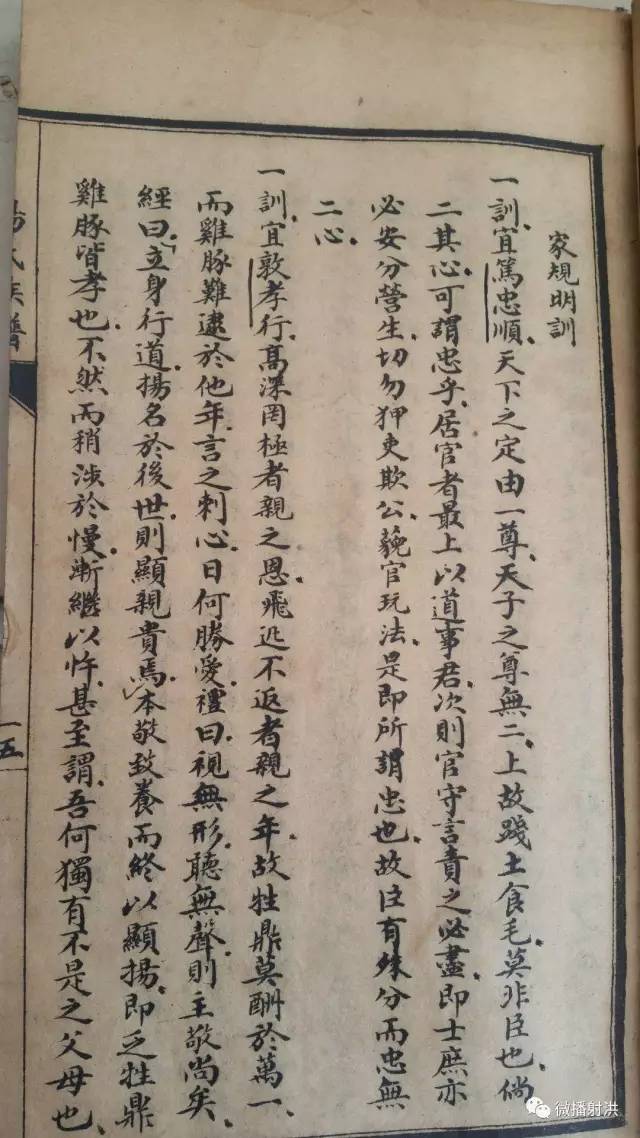 家規明訓
一訓宜篤忠順天下之定由一尊天子之尊無二上故踐土食毛莫非臣也倘
二其心可謂忠乎居官者最上以道事君次則官守言責之必盡即士庶亦
必安分營生切勿狎吏欺公藐官玩法是即所謂忠也故位有殊分而忠無
二心
一訓宜敦孝行高深罔極者親之恩飛逝不返者親之年故牲鼎莫酬於萬一
而雞豚難逮於他年言之刺心日何勝愛禮曰視無形聽無聲則主敬尚矣
經曰立身行道揚名於後世則顯親貴焉本敬致養而終以顯揚即乏牲鼎
雞豚皆孝也不然而稍涉於慢漸繼以忤甚至謂吾何獨有不是之父母也
氏族譜
一五
微播射洪